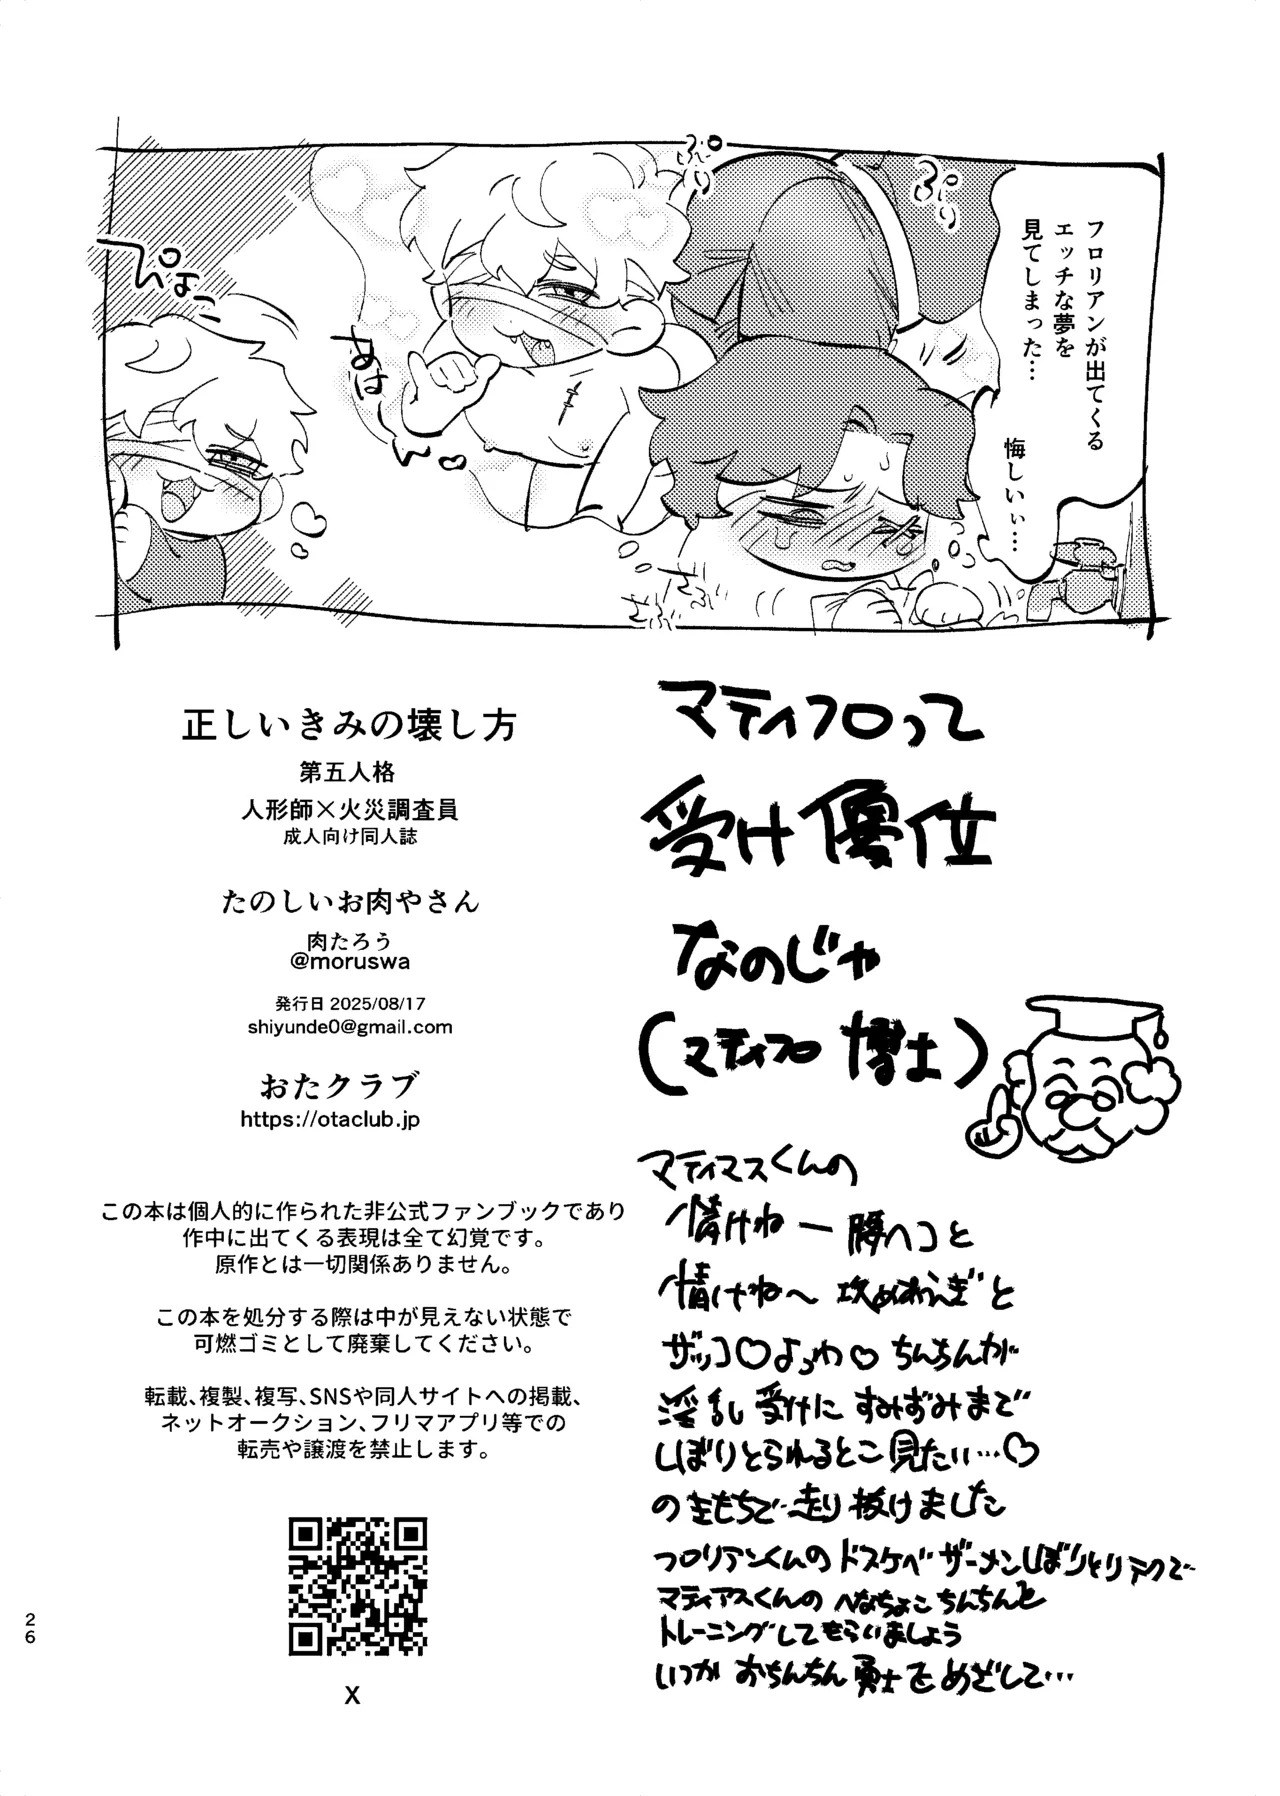 フロリアンが出てくる
エッチな夢を
見てしまった…
悔しいぃ…
ぷり
ぷり
あは
ん
ぴょ
正しいきみの壊し方
第五人格
人形師×火災調査員
成人向け同人誌
たのしいお肉やさん
肉たろう
@moruswa
発行日 2025/08/17
shiyunde0@gmail.com
おたクラブ
https://otaclub.jp
この本は個人的に作られた非公式ファンブックであり
作中に出てくる表現は全て幻覚です。
原作とは一切関係ありません。
この本を処分する際は中が見えない状態で
可燃ゴミとして廃棄してください。
転載、複製、複写、SNSや同人サイトへの掲載、
ネットオークション、フリマアプリ等での
転売や譲渡を禁止します。
X
マティフロって
受け優位
なのじゃ
(マティフロ 博士)
マティアスくんの
情けねー腰ヘコと
情けね〜攻めあえぎと
ザッコ♡よっわ♡ちんちんが
淫乱受けにすみずみまで
しぼりとられるとこ見たい…♡
の気もちで走り抜けました
フロリアンくんのドスケベザーメンしぼりとりテクで
マティアスくんのへなちょこちんちんを
トレーニングしてもらいましょう
いつかおちんちん勇士をめざして…
26